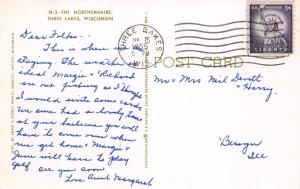 N-3—THE NORTHERNAIRE,
THREE LAKES, WISCONSIN
Dear Folks—
This is where we
staying. The weather
ideal Margie & Richard
are not fishing so I thought
I would write some cards
We sure had a lovely time
at your barbecue you will
have to come over when
we get home. Margie &
June will have to play
golf. See you soon
Love Aunt Margaret
THREE LAKES
WIS.
POST CARD
U.S. POSTAGE 3¢
LIBERTY
Mr & Mrs Neil Devitt
& Harry.
Berwyn
Ill